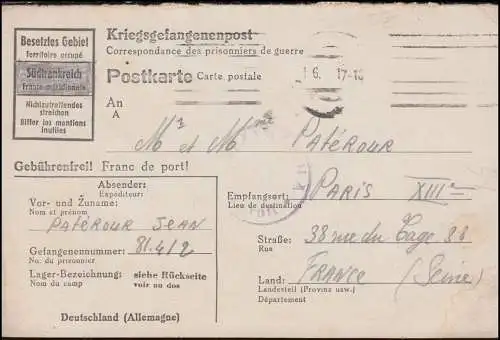 Kriegsgefangenenpost
Correspondance des prisonniers de guerre
Postkarte Carte postale
Besetztes Gebiet
Territoire occupé
Südfrankreich
France méridionale
Nichtzutreffendes
streichen
Biffer les mentions
inutiles
16. 17-18
An
A
Mr et Mme PATÉROUR
Gebührenfrei! Franc de port!
Absender:
Expéditeur:
Vor- und Zuname:
Nom et prénom
PATÉROUR JEAN
Gefangenennummer: 81.412
No. du prisonnier
Lager-Bezeichnung: siehe Rückseite
Nom du camp voir au dos
Deutschland (Allemagne)
Empfangsort: PARIS XIIIe
Lieu de destination
Straße: 38 rue du Tage 38
Rue
Land: FRANCE (Seine)
Landesteil (Provinz usw.)
Département